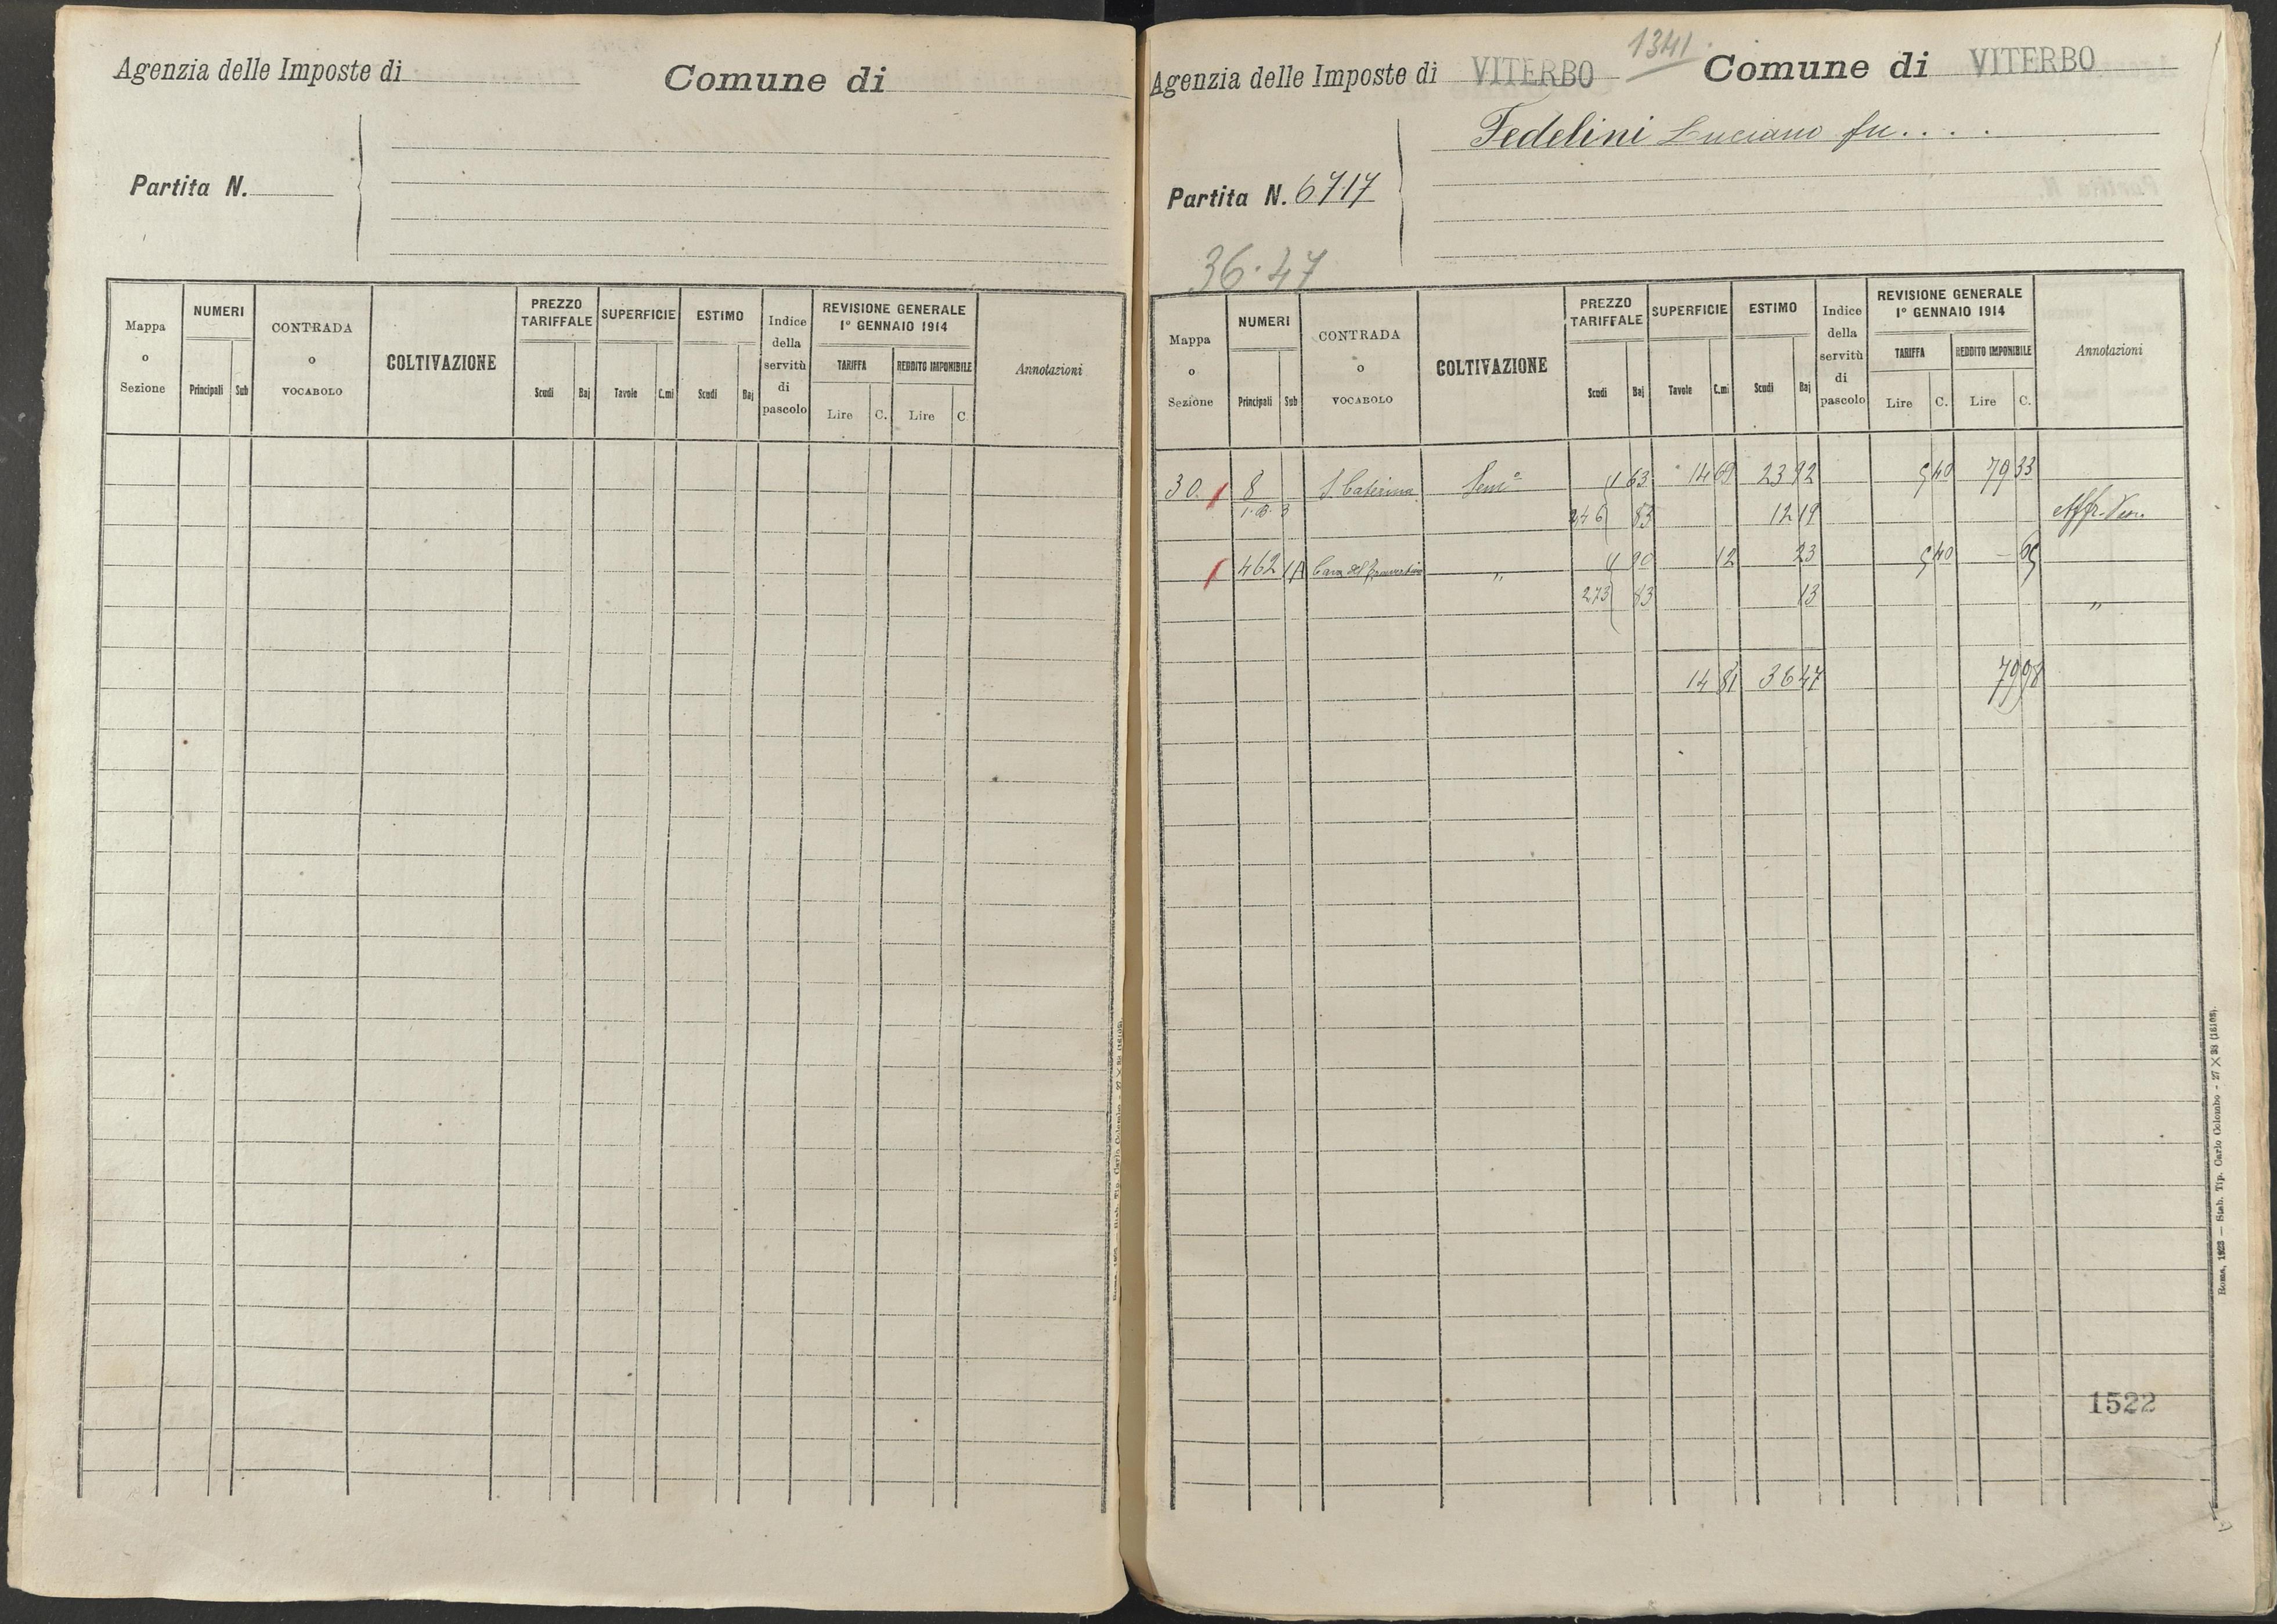 Agenzia delle Imposte di
Comune di
Partita N.
Mappa o Sezione
NUMERI
Principali Sub
CONTRADA o VOCABOLO
COLTIVAZIONE
PREZZO TARIFFALE
Scudi Baj
SUPERFICIE
Tavole C.mi
ESTIMO
Scudi Baj
Indice della servitù di pascolo
REVISIONE GENERALE
1° GENNAIO 1914
TARIFFA REDDITO IMPONIBILE
Lire C. Lire C.
Annotazioni
1341.
Agenzia delle Imposte di VITERBO Comune di VITERBO
Fedelini Luciano fu....
Partita N. 6717
36.47
Mappa o Sezione
NUMERI
Principali Sub
CONTRADA o VOCABOLO
COLTIVAZIONE
PREZZO TARIFFALE
Scudi Baj
SUPERFICIE
Tavole C.mi
ESTIMO
Scudi Baj
Indice della servitù di pascolo
REVISIONE GENERALE
1° GENNAIO 1914
TARIFFA REDDITO IMPONIBILE
Lire C. Lire C.
Annotazioni
30. 8 S. Caterina Semo 1 63 14 69 23 92 5 40 79 33
246 83 12 19 Affr.
462 1A Cava del " 1 90 12 23 5 40 — 65
273 83 13 "
14 81 36 47 79 98
1522
Roma, 1923 — Stab. Tip. Carlo Colombo - 27 X 38 (16108).